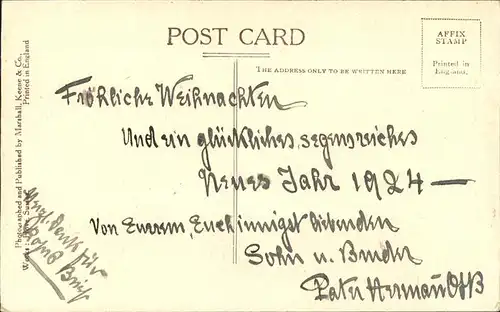 POST CARD
AFFIX
STAMP
Printed in
England.
THE ADDRESS ONLY TO BE WRITTEN HERE
Photographed and Published by Marshall, Keene & Co.,
Printed in England
Fröhliche Weihnachten
Und ein glückliches, segensreiches
Neues Jahr 1924 —
Von Eurem, Euch innigst liebenden
Sohn u. Bruder
Pater Hermañ OSB
Herzl. Dank für
Brief